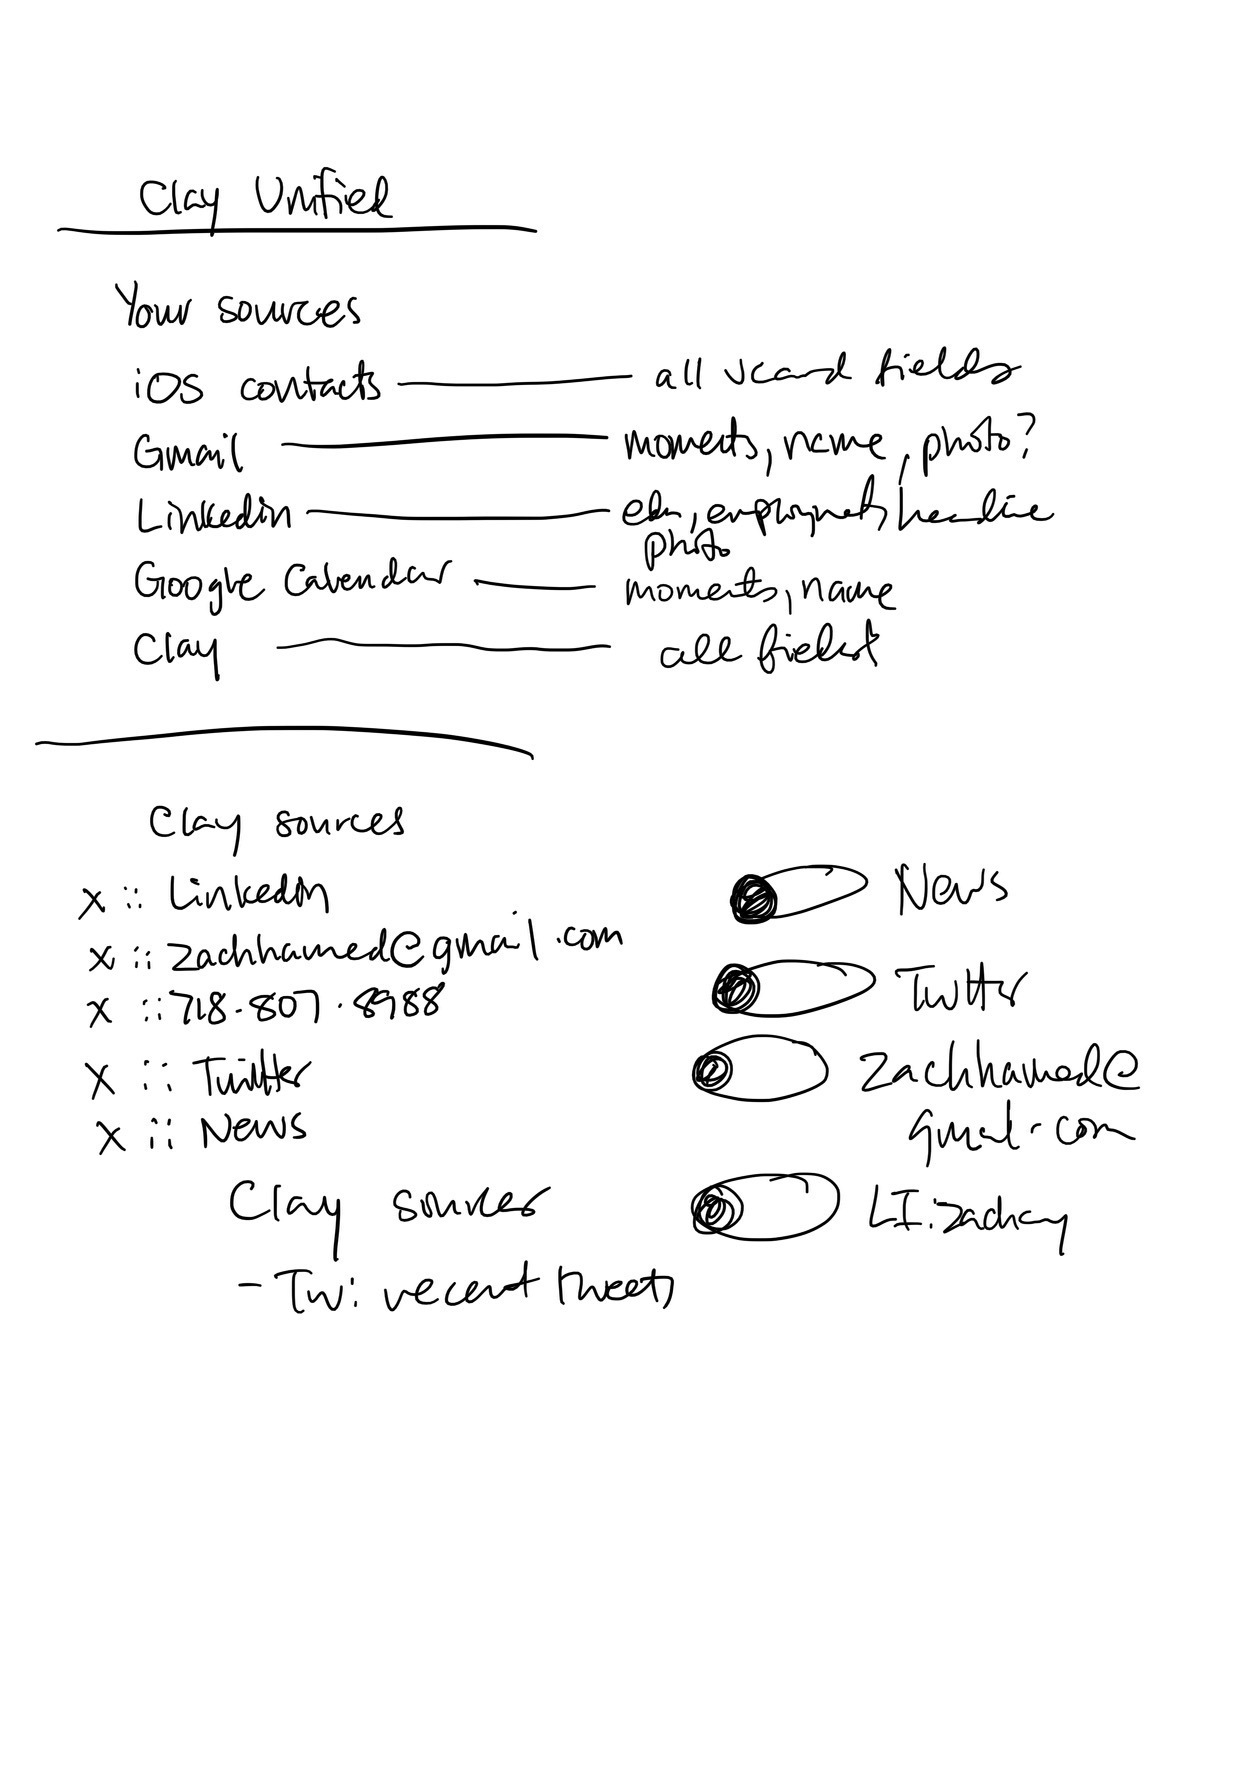 Clay Unified
Your sources
iOS contacts all vcard fields
Gmail moments, name, photo?
Linkedin edu, employment, headline
photo
Google Calendar moments, name
Clay all fields
Clay sources
x :: LinkedIn
x :: zachhamed@gmail.com
x :: 718.807.8988
x :: Twitter
x :: News
News
Twitter
zachhamed@
gmail.com
LI:zachay
Clay sources
- Tw: recent tweets